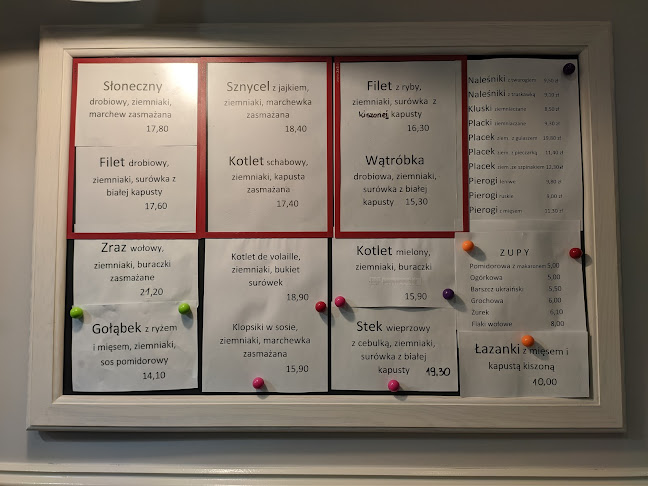 Słoneczny
drobiowy, ziemniaki,
marchew zasmażana
17,80
Filet drobiowy,
ziemniaki, surówka z
białej kapusty
17,60
Zraz wołowy,
ziemniaki, buraczki
zasmażane
21,20
Gołąbek z ryżem
i mięsem, ziemniaki,
sos pomidorowy
14,10
Sznycel z jajkiem,
ziemniaki, marchewka
zasmażana
18,40
Kotlet schabowy,
ziemniaki, kapusta
zasmażana
17,40
Kotlet de volaille,
ziemniaki, bukiet
surówek
18,90
Klopsiki w sosie,
ziemniaki, marchewka
zasmażana
15,90
Filet z ryby,
ziemniaki, surówka z
kiszonej kapusty
16,30
Wątróbka
drobiowa, ziemniaki,
surówka z białej
kapusty 15,30
Kotlet mielony,
ziemniaki, buraczki
15,90
Stek wieprzowy
z cebulką, ziemniaki,
surówka z białej
kapusty 19,30
Naleśniki z twarogiem
Naleśniki
Kluski
Placki ziemniaczane
Placek ziem. z gulaszem
Placek ziem. z pieczarką 11,40 zł
Placek ziem. ze szpinakiem 12,30 zł
Pierogi
Pierogi ruskie
Pierogi z mięsem
ZUPY
Pomidorowa z makaronem 5,00
Ogórkowa 5,00
Barszcz ukraiński 5,50
Grochowa 6,00
Żurek 6,10
Flaki wołowe 8,00
Łazanki z mięsem i
kapustą kiszoną
10,00